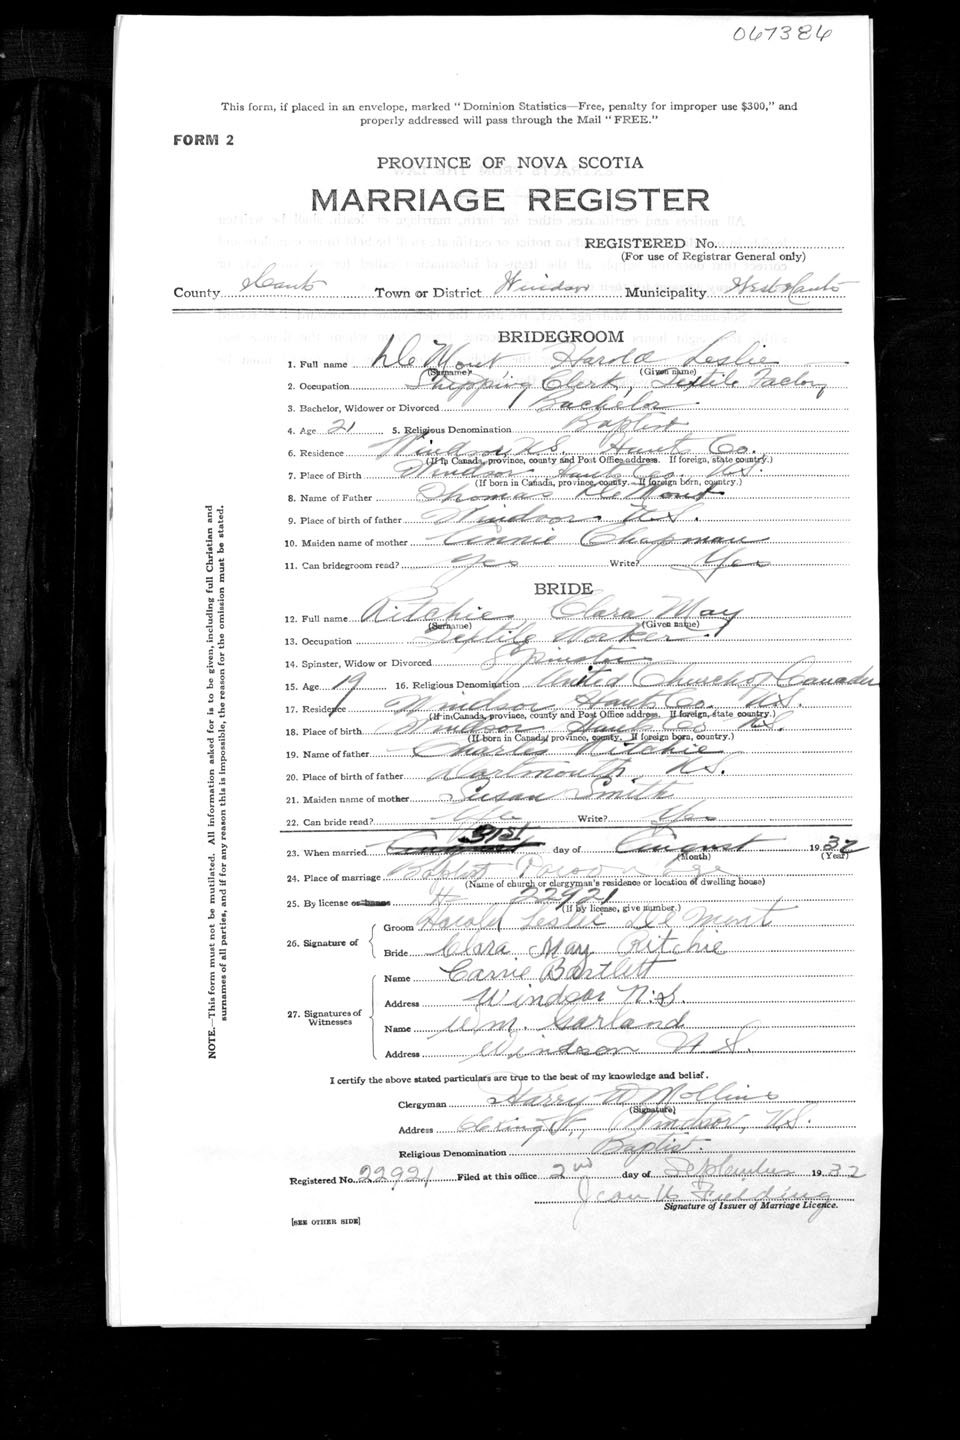 067386
This form, if placed in an envelope, marked "Dominion Statistics—Free, penalty for improper use $300," and
properly addressed will pass through the Mail "FREE."
FORM 2
PROVINCE OF NOVA SCOTIA
MARRIAGE REGISTER
REGISTERED No.
(For use of Registrar General only)
County Hants Town or District Windsor Municipality West Hants
BRIDEGROOM
1. Full name De Mont Harold Leslie
(Surname) (Given name)
2. Occupation Shipping Clerk, Textile Factory
3. Bachelor, Widower or Divorced Bachelor
4. Age 21 5. Religious Denomination Baptist
6. Residence Windsor N.S. Hants Co.
(If in Canada, province, county and Post Office address. If foreign, state country.)
7. Place of Birth Windsor Hants Co. N.S.
(If born in Canada, province, county.—If foreign born, country.)
8. Name of Father Thomas De Mont
9. Place of birth of father Windsor N.S.
10. Maiden name of mother Annie Chapman
11. Can bridegroom read? Yes Write? Yes
BRIDE
12. Full name Ritchie Clara May
(Surname) (Given name)
13. Occupation Textile Worker
14. Spinster, Widow or Divorced Spinster
15. Age 19 16. Religious Denomination United Church of Canada
17. Residence Windsor Hants Co. N.S.
(If in Canada, province, county and Post Office address. If foreign, state country.)
18. Place of birth Windsor Hants Co N.S.
(If born in Canada, province, county. If foreign born, country.)
19. Name of father Charles Ritchie
20. Place of birth of father Dartmouth, N.S.
21. Maiden name of mother Susan Smith
22. Can bride read? Yes Write? Yes
23. When married 31st day of August 1932
(Month) (Year)
24. Place of marriage Baptist Parsonage
(Name of church or clergyman's residence or location of dwelling house)
25. By license or banns 22921
(If by license, give number.)
26. Signature of Groom Harold Leslie De Mont
Bride Clara May Ritchie
27. Signatures of Witnesses Name Carrie Bartlett
Address Windsor N.S.
Name Wm. Garland
Address Windsor N.S.
I certify the above stated particulars are true to the best of my knowledge and belief.
Clergyman Harry A Mollins
(Signature)
Address St., Windsor, N.S.
Religious Denomination Baptist.
Registered No. 22921 Filed at this office 2nd day of September 1932
Jean Fielding
Signature of Issuer of Marriage Licence.
[SEE OTHER SIDE]
NOTE.—This form must not be mutilated. All information asked for is to be given, including full Christian and
surnames of all parties, and if for any reason this is impossible, the reason for the omission must be stated.